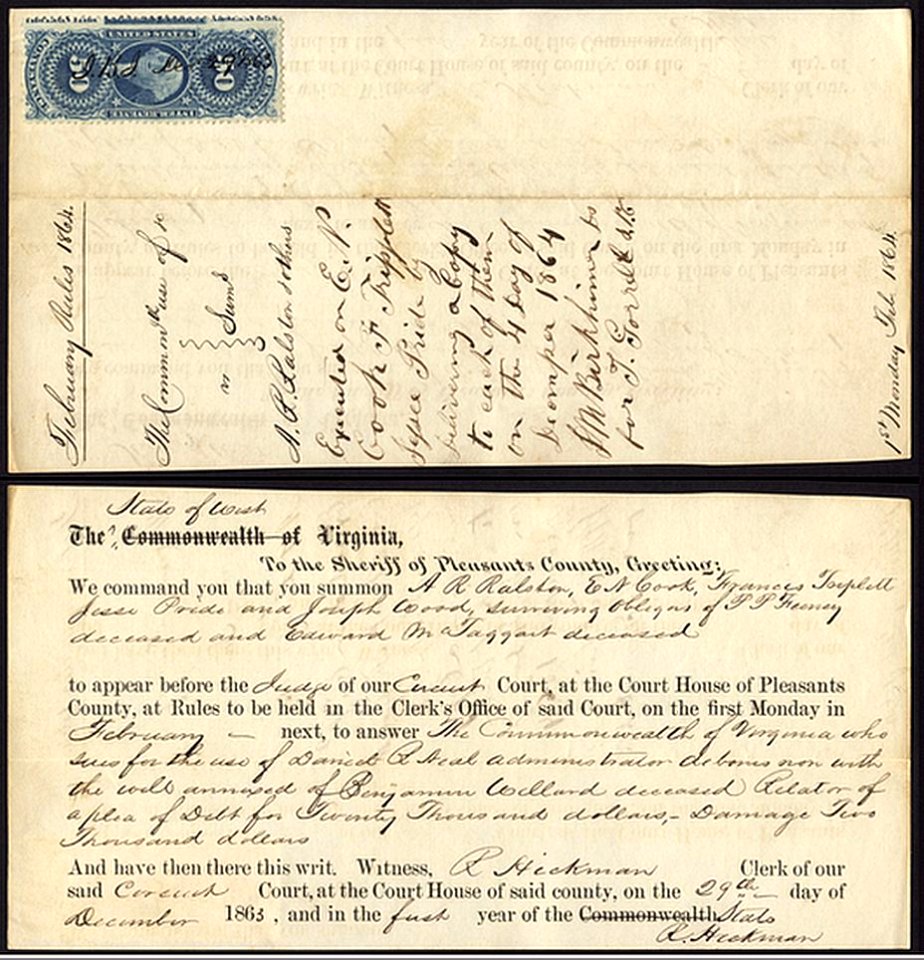 UNITED STATES
50
50
INTER. REVENUE
February Rules 1864.
The Common.th use of &c
vs } Sums
A. R. Ralston & others
Executed on E. N.
Cook F Tripplett
Jesse Pride by
delivering a Copy
to each of them
on the 4 day of
1864
for T. Gorrell
1st Monday Feb. 1864.
State of West
The, Commonwealth of Virginia,
To the Sheriff of Pleasants County, Greeting:
We command you that you summon A R Ralston, E N Cook, Francis Triplett
Jesse Pride and Joseph Wood, surviving obligors of P P Feeney
deceased and Edward McTaggart deceased
to appear before the Judge of our Circuit Court, at the Court House of Pleasants
County, at Rules to be held in the Clerk's Office of said Court, on the first Monday in
February next, to answer The Commonwealth of Virginia who
sues for the use of Daniel R Neal administrator debonis non with
the will annexed of Benjamin Willard deceased Relator of
a plea of Debt for Twenty Thousand dollars,- Damage Two
Thousand dollars
And have then there this writ. Witness, R Hickman Clerk of our
said Circuit Court, at the Court House of said county, on the 29th day of
December 1863, and in the first year of the Commonwealth State
R. Hickman